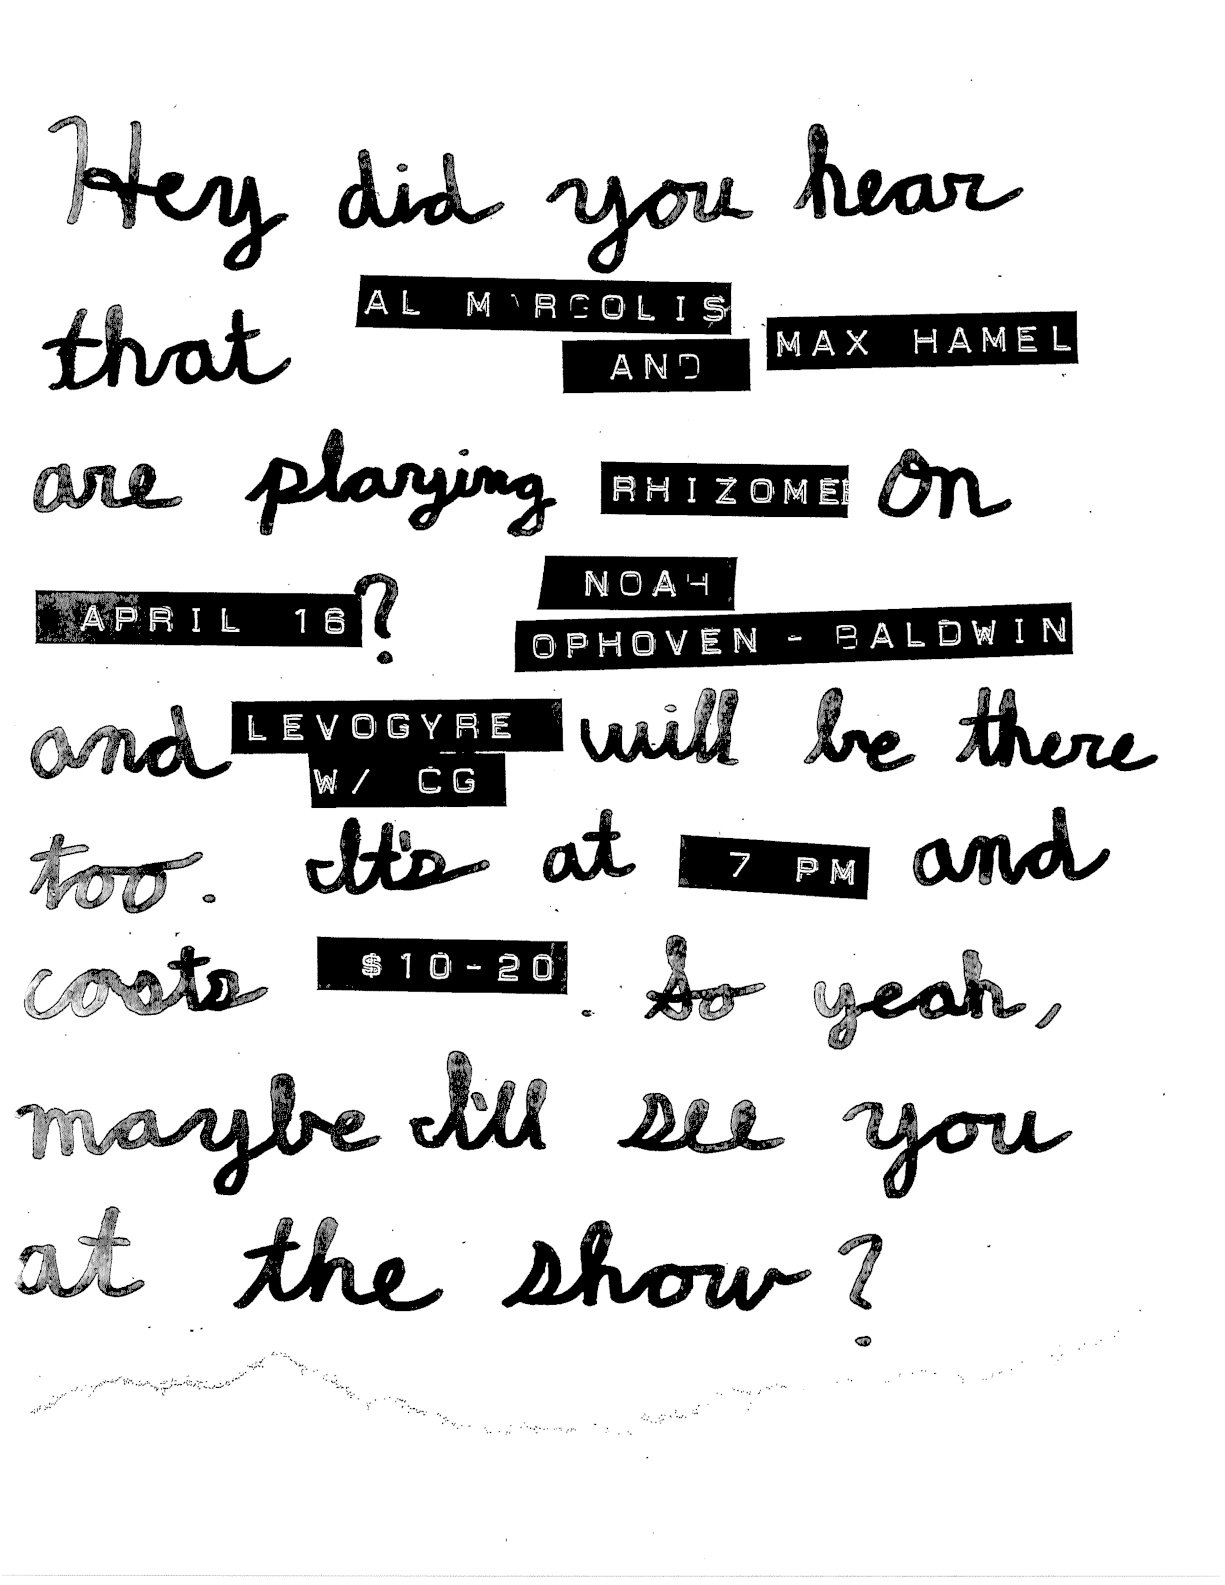 Hey did you hear
that AL MARGOLIS AND MAX HAMEL
are playing RHIZOME On
APRIL 16? NOAH
OPHOVEN - BALDWIN
and LEVOGYRE will be there
W/ CG
too. It's at 7 PM and
costs $10-20. So yeah,
maybe I'll see you
at the show?